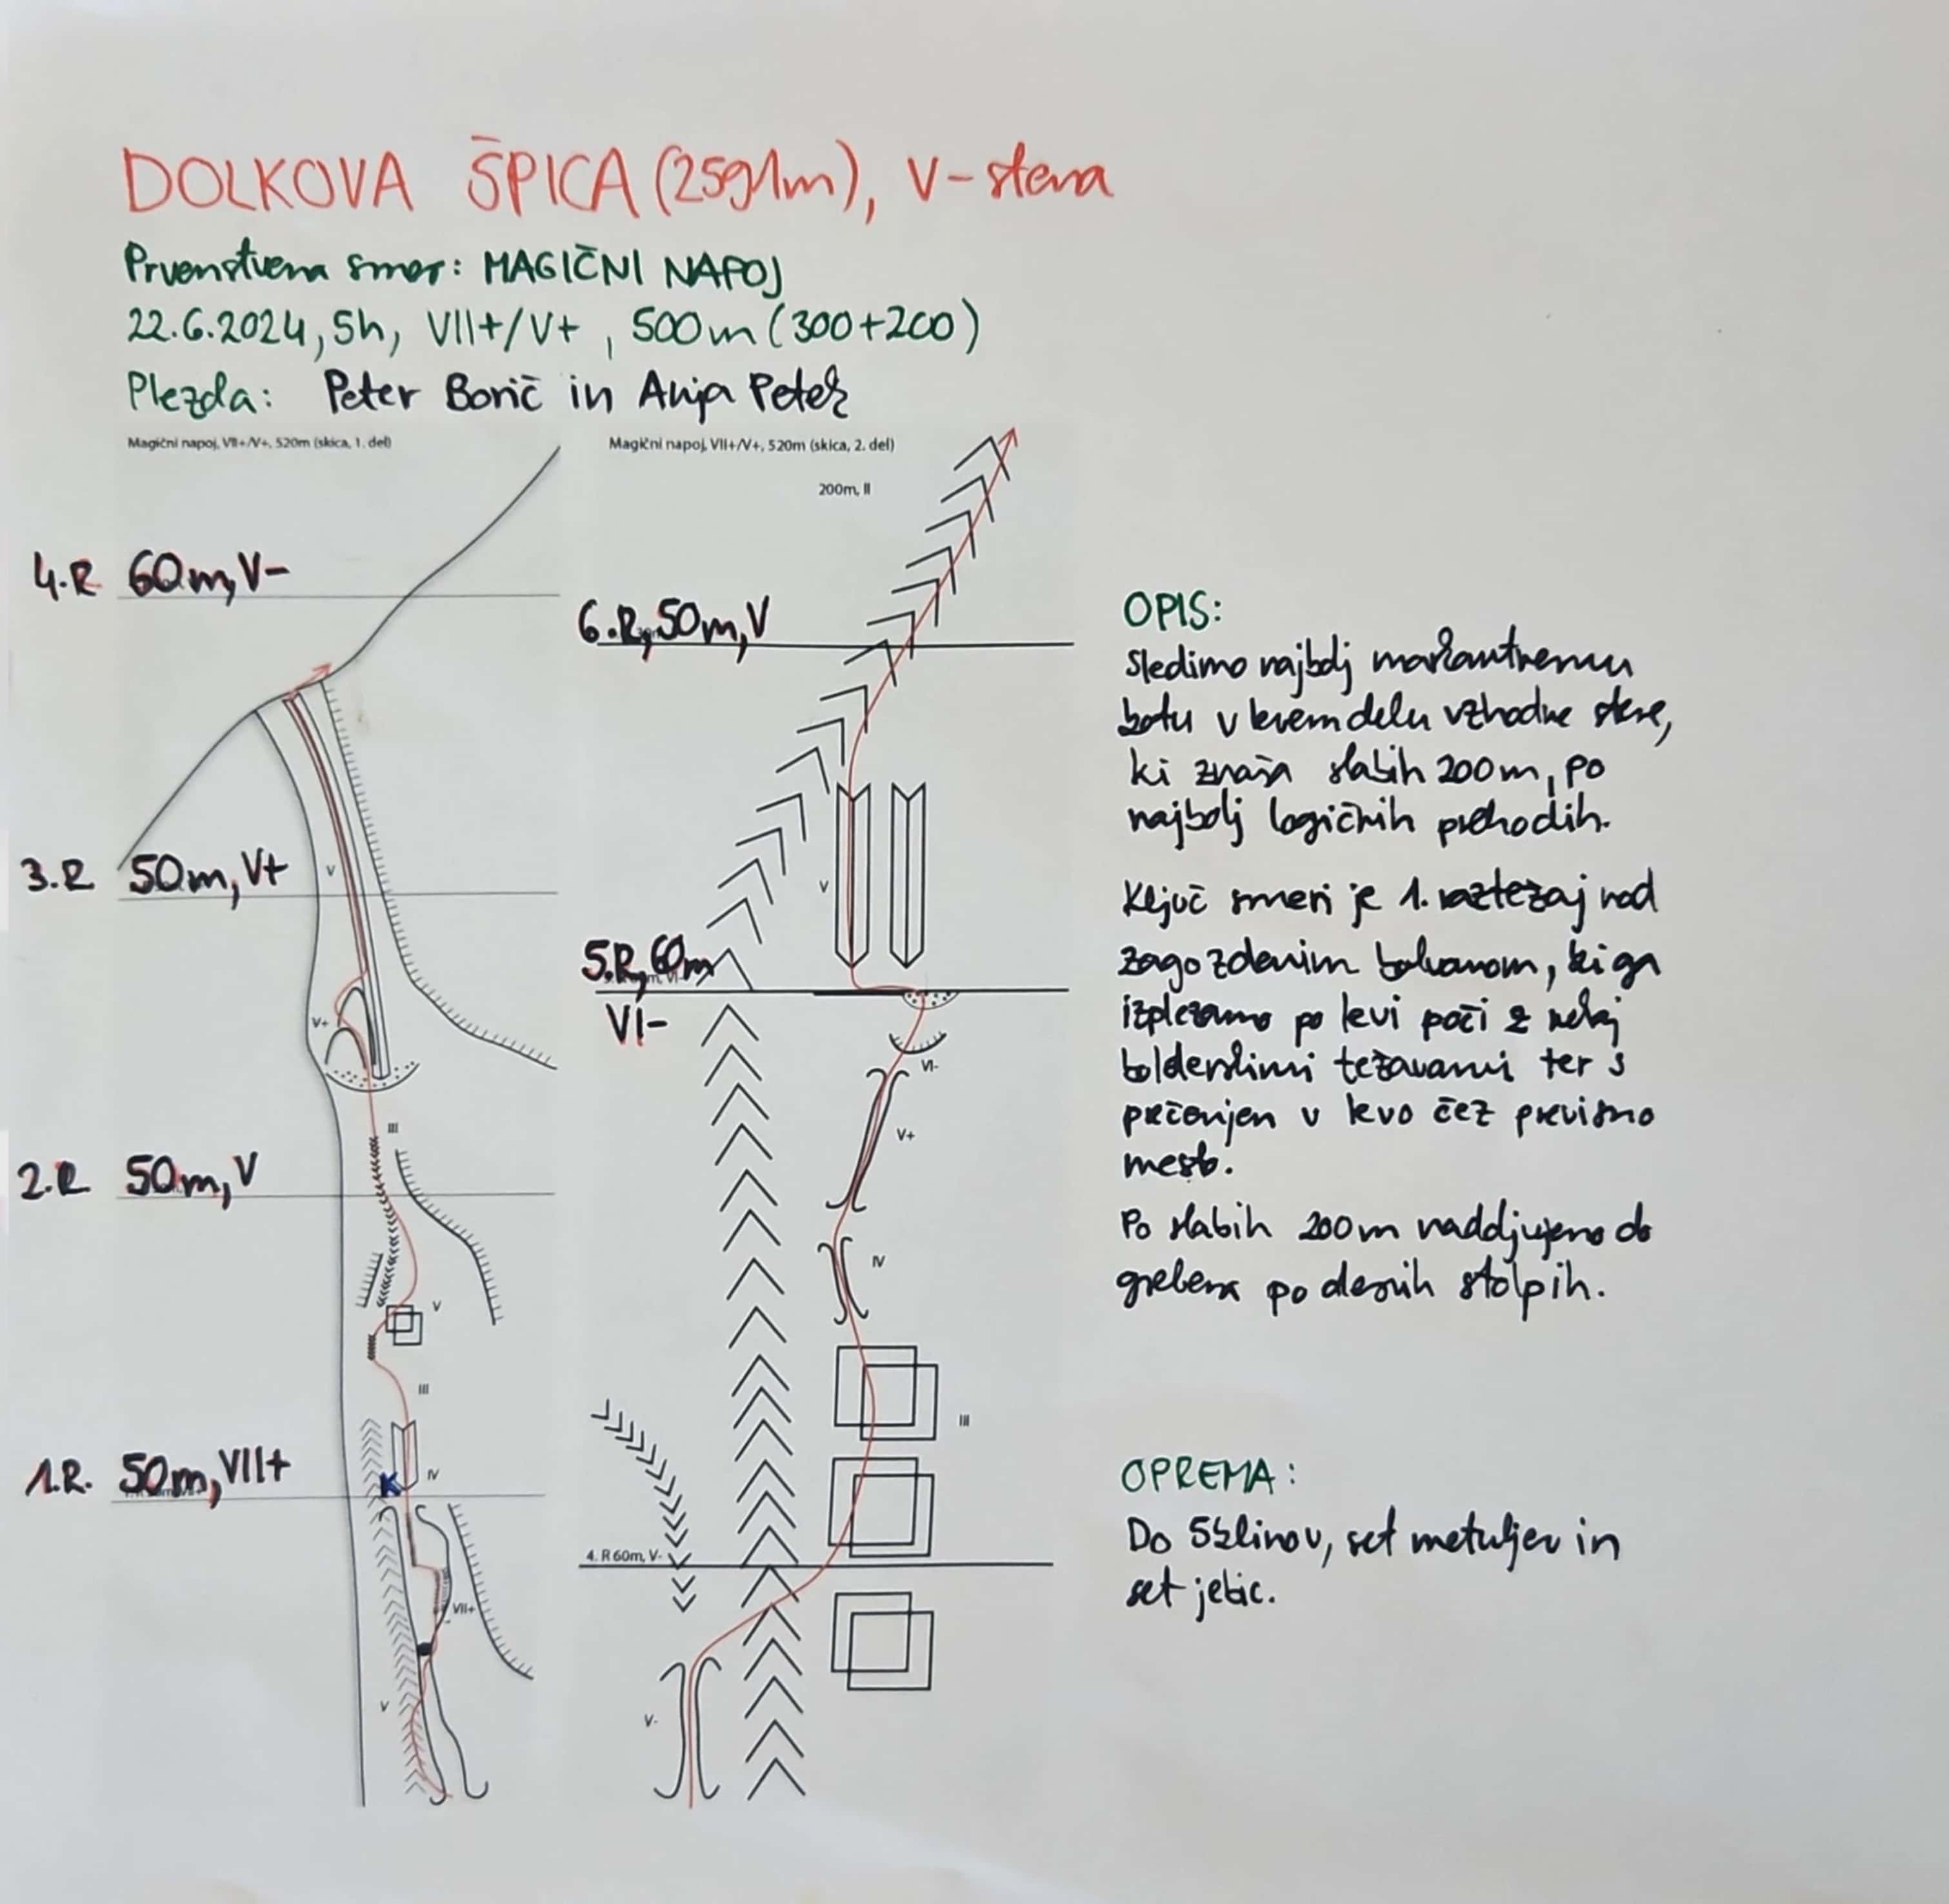 DOLKOVA ŠPICA (2591m), V-stena
Prvenstvena smer: MAGIČNI NAPOJ
22.6.2024, 5h, VII+/V+, 500m (300+200)
Plezala: Peter Borič in Anja Petek
Magični napoj, VII+/V+, 520m (skica, 1. del)
4.R 60m, V-
3.R 50m, V+
V
V+
III
2.R 50m, V
V
III
1.R. 50m, VII+
IV
VII+
V
Magični napoj, VII+/V+, 520m (skica, 2. del)
200m, II
6.R, 50m, V
V
5.R, 60m
VI-
VI-
V+
IV
III
4. R 60m, V-
V-
OPIS:
Sledimo najbolj markantnemu
boku v levem delu vzhodne stene,
ki znaša slabih 200m, po
najbolj logičnih prehodih.
Ključ smeri je 1. raztežaj nad
zagozdenim balvanom, ki ga
izplezamo po levi poči z nekaj
bolderskimi težavami ter s
prečenjem v levo čez previsno
mesto.
Po slabih 200m nadaljujemo do
grebena po desnih stolpih.
OPREMA:
Do 5 klinov, set metuljev in
set jebic.